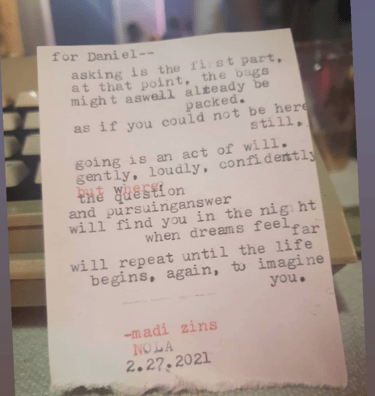 for Daniel--
asking is the first part,
at that point, the bags
might aswell already be
packed.
as if you could not be here
still.
going is an act of will.
gently, loudly, confidently
but where
the question
and pursuinganswer
will find you in the night
when dreams feel far
will repeat until the life
begins, again, to imagine
you.
-madi zins
NOLA
2.27.2021